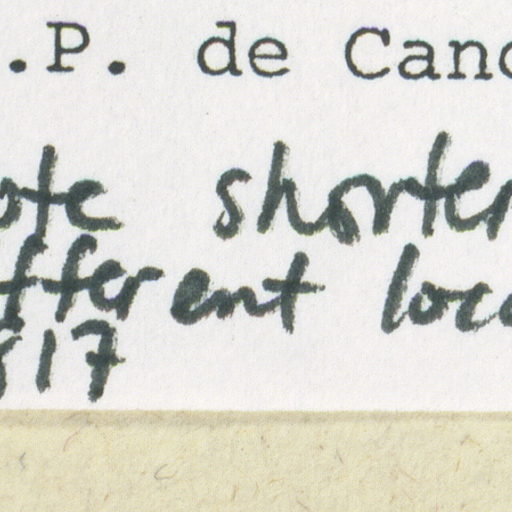 .P. de Canc
ote shorter
fferent loca
817